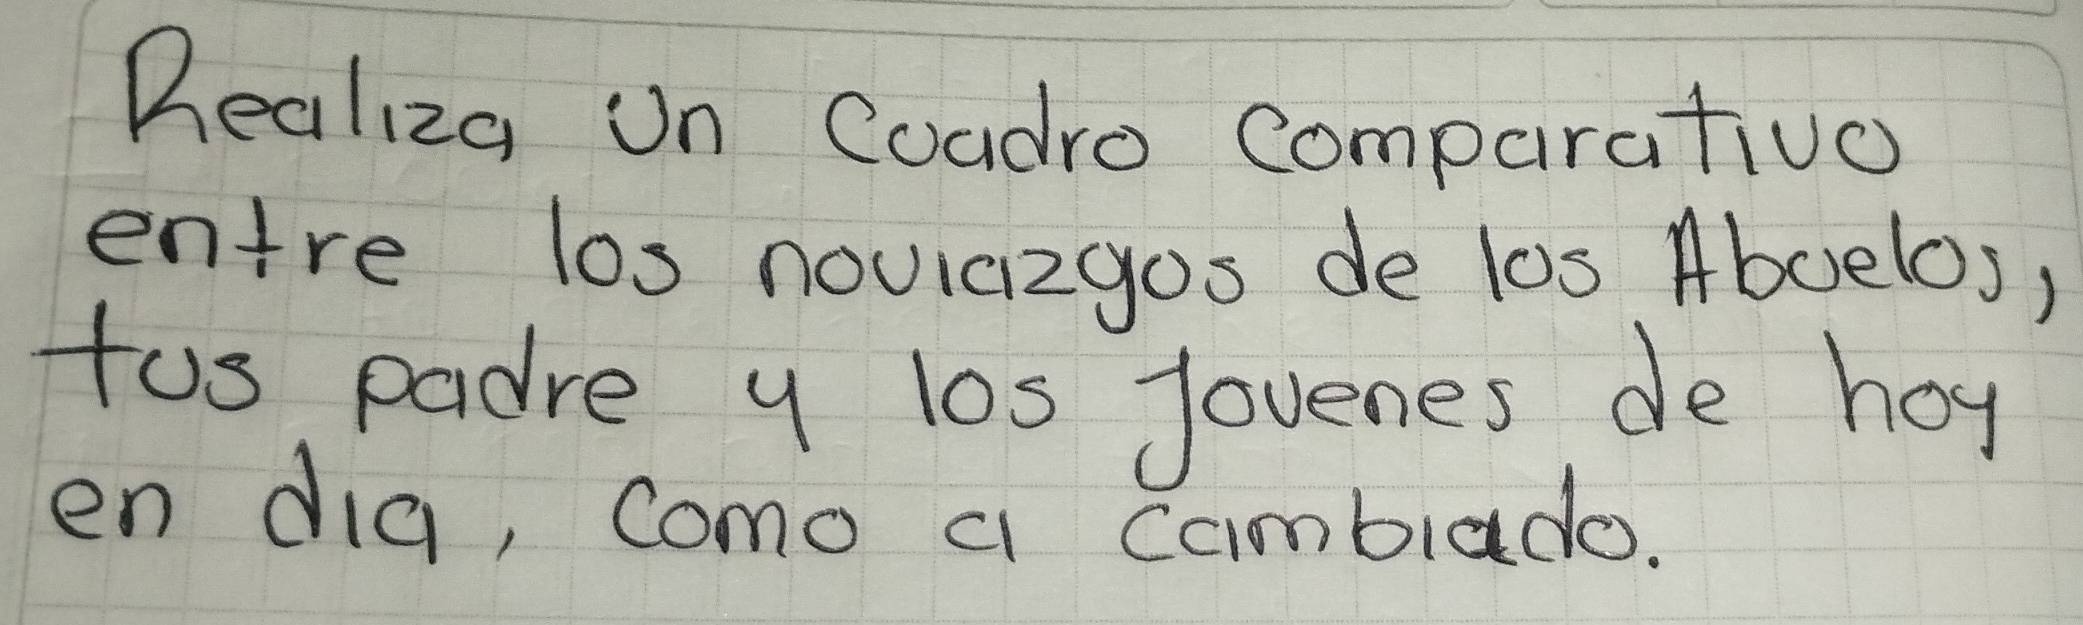 Realiza Un Cuadro Comparativo
entre los noviazgos de los Abuelos,
tus padre y los Jovenes de hoy
en dia, Como a Cambiado.